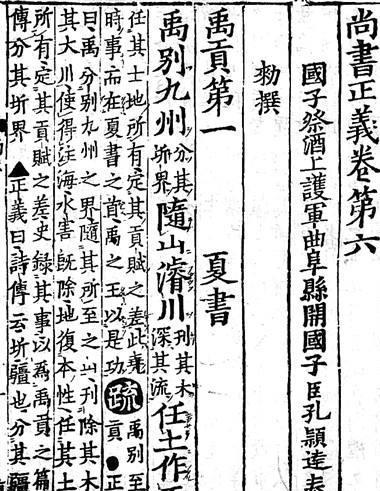 尚書正義卷第六
國子祭酒上護軍曲阜縣開國子臣孔穎達
勑撰
禹貢第一 夏書
禹別九州 分其圻界 隨山濬川 刊其木深其流 任土作
任其土地所有定其貢賦之差此堯
時事而在夏書之首禹之王以是功 疏 禹別至
貢●正
曰禹分別九州之界隨其所至之山刊除其木
其大川使得注海水害既除地復本性任其土
所有定其貢賦之差史錄其事以為禹貢之篇
傳分其圻界▲正義曰詩傳云圻疆也分其疆